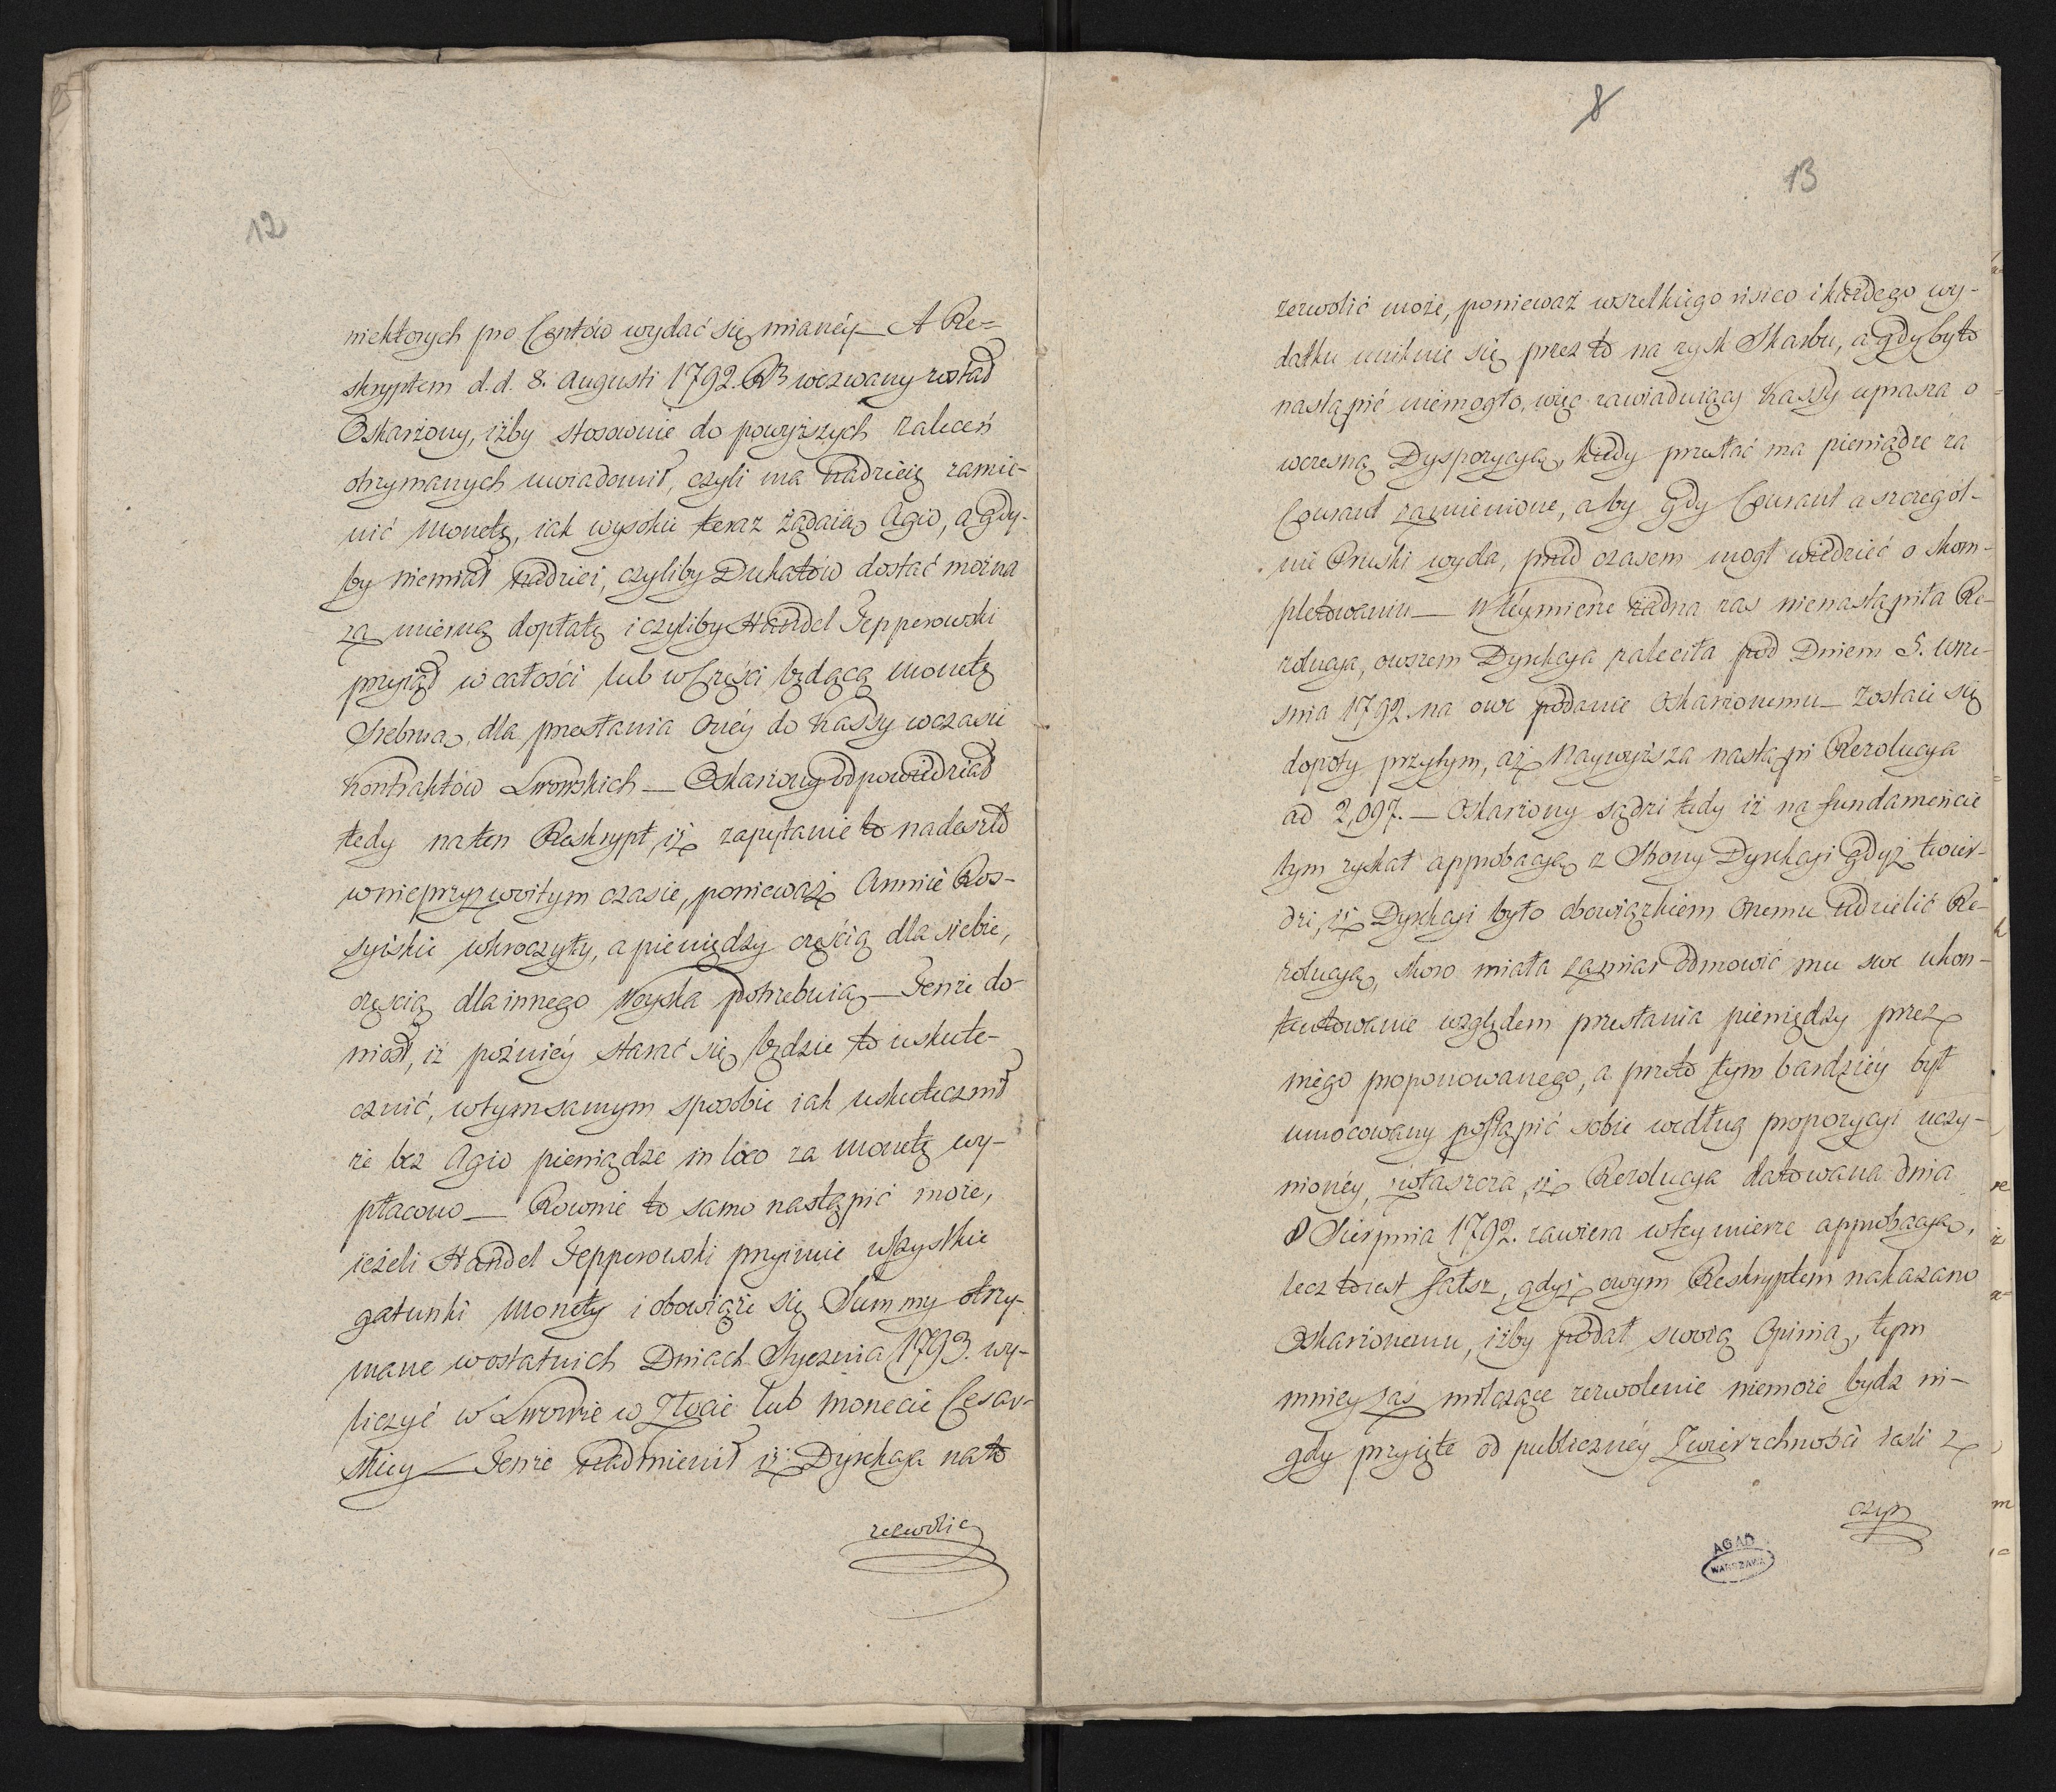 12
niektorych pro Centów wydać się mianéy — A Re=
skryptem d. d. 8. Augusti 1792. wezwany został
Oskarżony, iżby stosownie do powyższych zaleceń
otrzymanych uwiadomił, czyli ma nadzieię zamie-
nić Monetę, iak wysokie teraz żądaią Agio, a gdy-
by niemiał nadziei, czyliby Dukatów dostać można
za mierną dopłatę i czyliby Handel Tepperowski
przyiął w całości lub w Części będącą Monetę
Srebrną, dla przesłania Onéy do Kassy w czasie
Kontraktów Lwowskich — Oskarżony odpowiedział
tedy na ten Reskrypt, iż zapytanie to nadeszło
w nieprzyzwoitym czasie, ponieważ Armie Ros-
syiskie wkroczyły, a pieniędzy częścią dla siebie,
częścią dla innego Woyska potrzebuią — Tenże do-
niosł, iż poźniéy starać się będzie to uskute-
cznić, w tym samym sposobie iak uskutecznił
że bez Agio pieniądze in loco za Monetę wy-
płacono — Rownie to samo nastąpić może,
ieżeli Handel Tepperowski przyimie wszystkie
gatunki Monety i obowiąże się Summy otrzy-
mane w ostatnich Dniach Stycznia 1793. wy-
liczyć w Lwowie w Złocie lub Monecie Cesar-
skiey — Tenże nadmienił iż Dyrekcya na to
zezwolić
8
13
zezwolić może, ponieważ wszelkiego risico i każdego wy-
datku uniknie się przez to na zysk Skarbu, a gdyby to
nastąpić niemogło, więc zawiaduiący Kassy uprasza o
wczesną Dyspozycyą, kiedy przesłać ma pieniądze za
Courant zamienione, aby gdy Courant a szczegól-
nie Pruski wyda, przed czasem mogł wiedzieć o skom-
pletowaniu — W teymierze żadna zas nienastąpiła Re-
zolucya, owszem Dyrekcya zaleciła pod Dniem 5. Wrze-
snia 1792 na owe podanie Oskarżonemu — Zostaie się
dopoty przytym, aż Naywyższa nastąpi Rezolucya
ad 2,097. — Oskarżony sądzi tedy iż na fundamencie
tym zyskał approbacyą z Strony Dyrekcyi gdyż twier-
dzi, iż Dyrekcyi było obowiązkiem Onemu udzielić Re-
zolucyą, skoro miała zamiar odmowić mu swe ukon-
tentowanie względem przesłania pieniędzy przez
niego proponowanego, a przeto tym bardziéy był
umocowany postąpić sobie według propozycyi uczy-
nionéy, zwłaszcza, iż Rezolucya datowana dnia
8 Sierpnia 1792. zawiera w tey mierze approbacyą,
lecz to iest fałsz, gdyż owym Reskryptem nakazano
Oskarżonemu, iżby podał swoią Opinią, tym
mniey zaś milczące zezwolenie niemoże bydz ni-
gdy przyięte od publicznéy Zwierzchności iesli z
czyn
AGAD
WARSZAWA